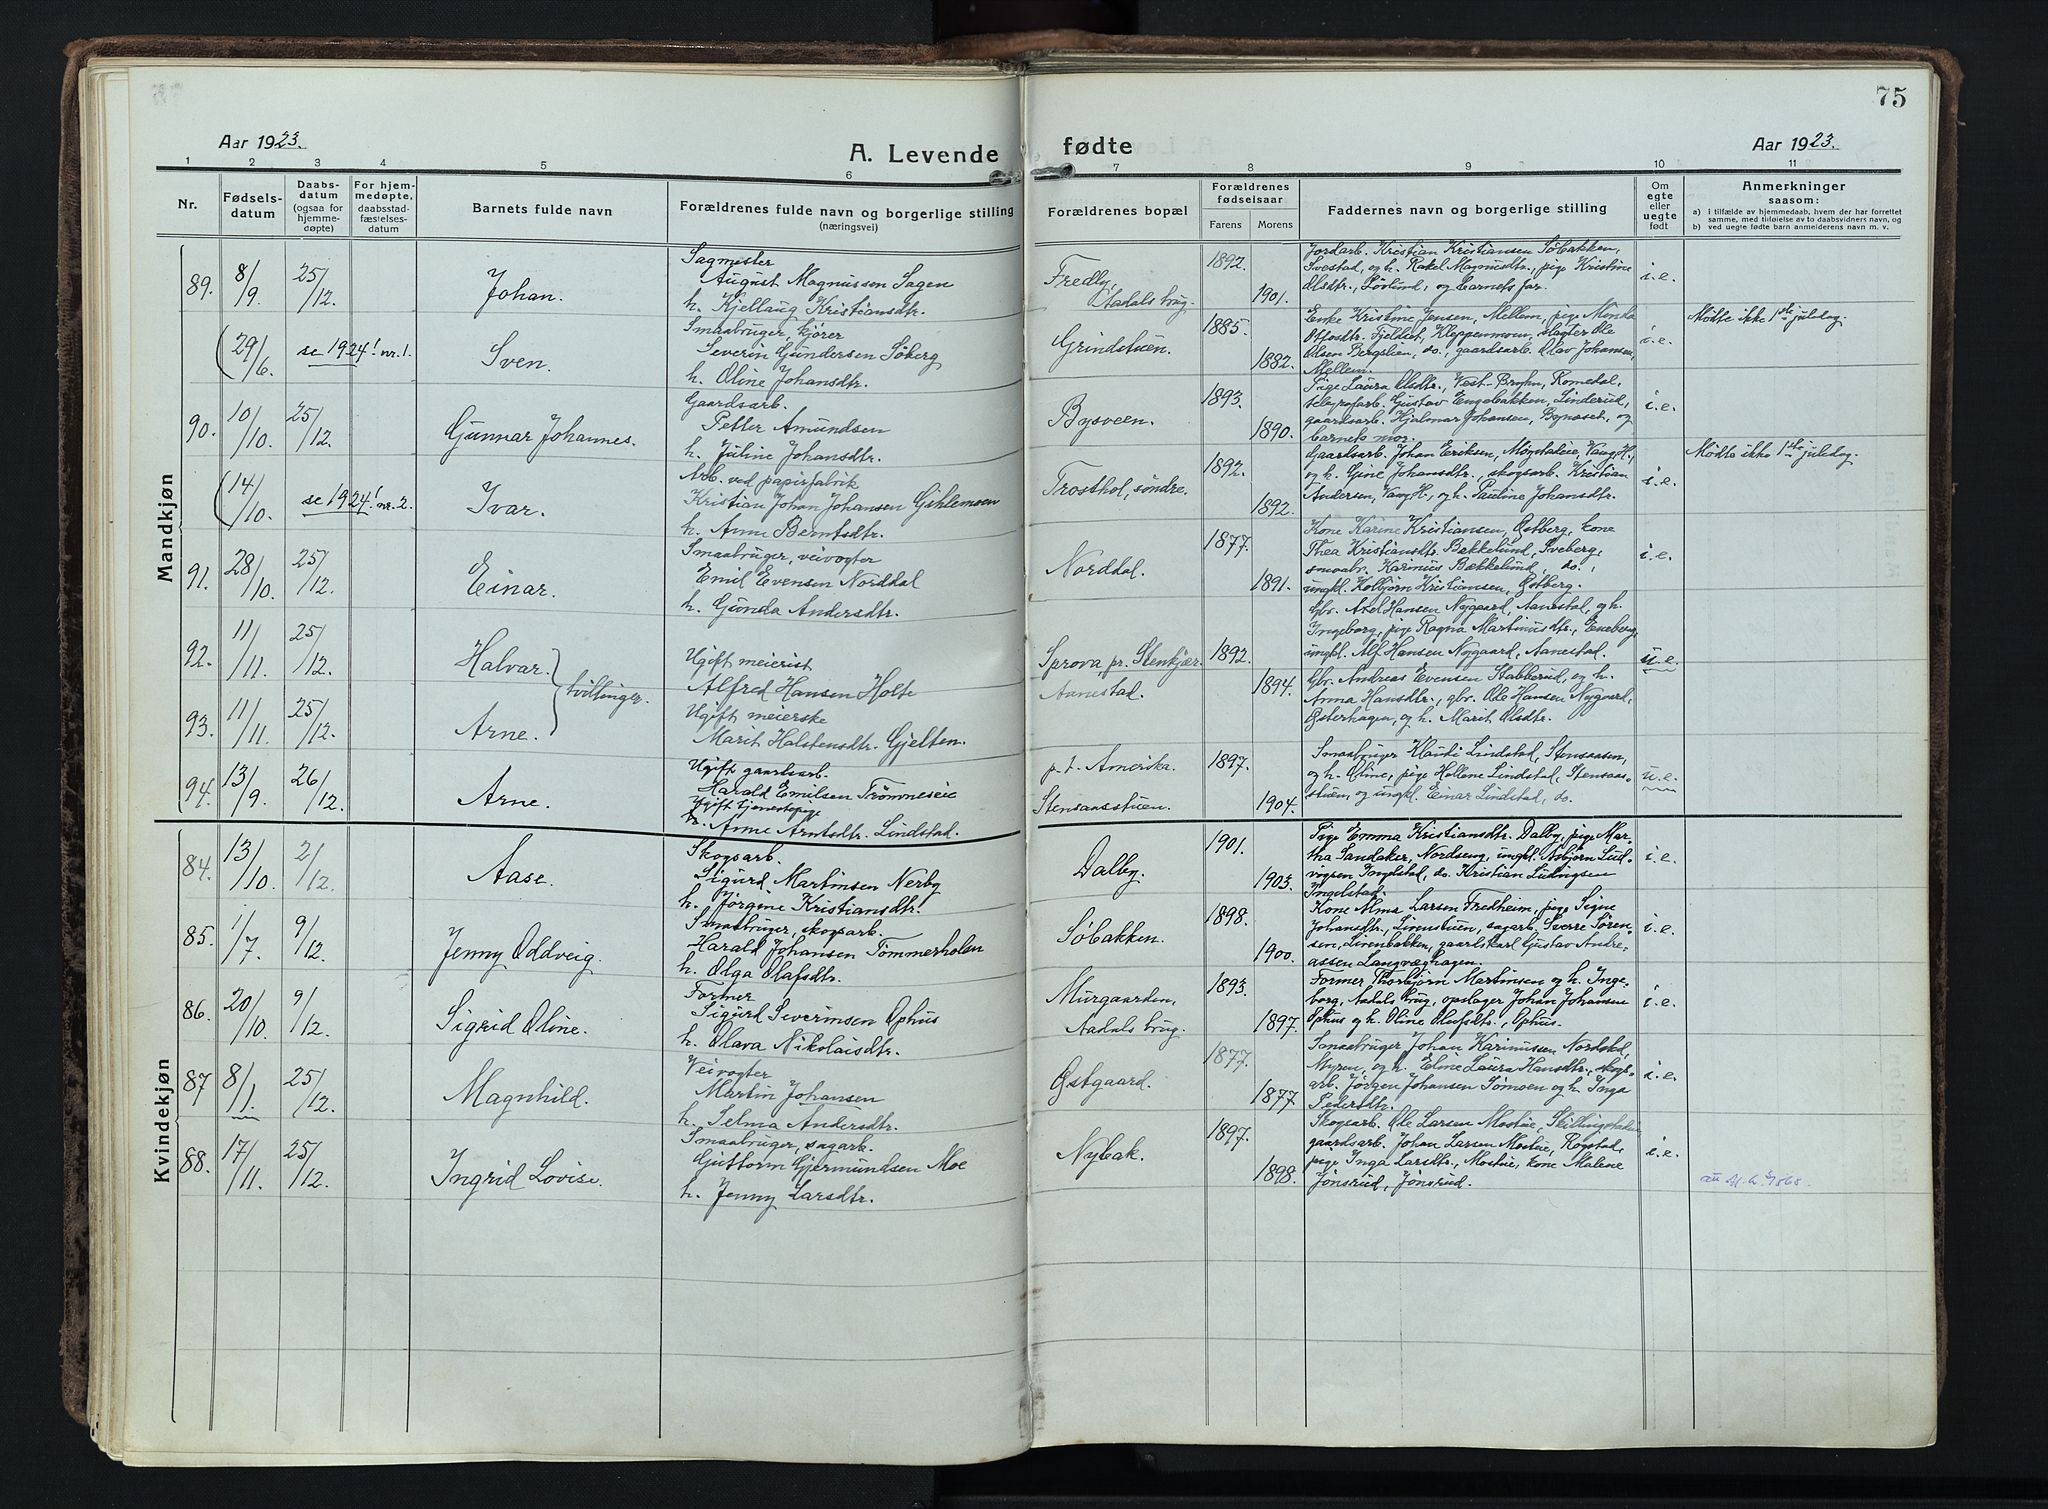 75
Aar 1923.
A. Levende fødte
Aar 1923.
1 2 3 4 5 6 7 8 9 10 11
Nr.
Fødsels-
datum
Daabs-
datum
(ogsaa for
hjemme-
døpte)
For hjem-
medøpte,
daabsstad-
fæstelses-
datum
Barnets fulde navn
Forældrenes fulde navn og borgerlige stilling
(næringsvei)
Forældrenes bopæl
Forældrenes
fødselsaar
Farens Morens
Faddernes navn og borgerlige stilling
Om
egte
eller
uegte
født
Anmerkninger
saasom:
a) i tilfælde av hjemmedaab, hvem der har forrettet
samme, med tilføielse av to daabsvidners navn, og
b) ved uegte fødte barn anmelderens navn m. v.
Mandkjøn
89. 8/9. 25/12. Johan.
Sagmester
August Magnussen Sagen
h. Kjellaug Kristiansdtr.
Fredly, Aadals brug.
1892. 1901.
Jordarb. Kristian Kristiansen Søbakken,
Svestad, og h. Rakel Magnusdtr., pige Kristine
Olsdtr., Løvlund, og barnets far.
i.e.
(29/6. se 1924! nr. 1. Sven.
Smaabruger, kjører
Severin Gundersen Søberg
h. Oline Johansdtr.
Grindstuen.
1885. 1882.
Enke Kristine Jensen, Mellem, pige Monda
Otfosdtr. Fjeldset, Kleppenmoen, slagter Ole
Olsen Bergslien, do., gaardsarb. Olav Johansen,
Mellem.
i.e.
Mødte ikke 1ste juledag.
90. 10/10. 25/12. Gunnar Johannes.
Gaardsarb.
Petter Amundsen
h. Juline Johansdtr.
Bysveen.
1893. 1890.
Pige Laura Olsdtr., Vest-Bryhn, Romedal,
telegrafarb. Gustav Engebakken, Linderud,
gaardsarb. Hjalmar Johansen, Bynæset, og
barnets mor.
i.e.
(14/10. se 1924! nr. 2. Ivar.
Arb. ved papirfabrik
Kristian Johan Johansen Gihlemoen
h. Anne Berntsdtr.
Trosthol, søndre.
1892. 1892.
Gaardsarb. Johan Eriksen, Møystadeie, Vang H.,
og h. Gine Johansdtr., skogsarb. Kristian
Andersen, Vang H., og h. Pauline Johansdtr.
i.e.
Mødte ikke 1ste juledag.
91. 28/10. 25/12. Einar.
Smaabruger, veivogter
Emil Evensen Norddal
h. Gunda Andersdtr.
Norddal.
1877. 1891.
Kone Karine Kristiansen, Østberg, kone
Thea Kristiansdtr. Bækkelund, Sveberg,
smaabr. Karinius Bækkelund, do.,
ungkl. Kolbjørn Kristiansen, Østberg.
i.e.
92. 11/11. 25/12. Halvar.
93. 11/11. 25/12. Arne.
tvillinger.
Ugift meierist
Alfred Hansen Holte
Ugift meierske
Marit Halstensdtr. Gjelten.
Sprova, pr. Stenkjær.
Aanestad.
1892. 1894.
Gbr. Axel Hansen Nygaard, Aanestad, og h.
Ingeborg, pige Ragna Martinusdtr., Eneberg,
ungkl. Alf Hansen Nygaard, Aanestad.
Gbr. Andreas Evensen Stabberud, og h.
Anna Hansdtr., gbr. Ole Hansen Nygaard,
Østerhagen, og h. Marit Olsdtr.
u.e.
94. 13/9. 26/12. Arne.
Ugift gaardsarb.
Harald Emilsen Trømneseie
Ugift tjenestepige
Anne Arntsdtr. Lindstad.
p.t. Amerika.
Stensaasstuen.
1897. 1904.
Smaabruger Klaudi Lindstad, Stensaasen,
og h. Oline, pige Hellene Lindstad, Stensaas-
stuen, og ungkl. Einar Lindstad, do.
u.e.
Kvindekjøn
84. 13/10. 2/12. Aase.
Skogsarb.
Sigurd Martinsen Nerby
h. Jørgine Kristiansdtr.
Dalby.
1901. 1903.
Pige Emma Kristiansdtr. Dalby, pige Mar-
tha Sandaker, Nordseng, ungkl. Asbjørn Lud-
vigsen Ingelstad, do. Kristian Ludvigsen
Ingelstad.
i.e.
85. 1/7. 9/12. Jenny Oddveig.
Smaabruger, skogsarb.
Harald Johansen Tømmerholen
h. Olga Olafsdtr.
Søbakken.
1898. 1900.
Kone Alma Larsen Fredheim, pige Signe
Johansdtr., Lirenstuen, sagarb. Sverre Søren-
sen, Lirenbakken, gaardskarl Gustav Andre-
assen Langvæghagen.
i.e.
86. 20/10. 9/12. Sigrid Oline.
Former
Sigurd Severinsen Ophus
h. Olava Nikolaisdtr.
Murgaarden,
Aadals brug.
1893. 1897.
Former Thorbjørn Martinsen og h. Inge-
borg, Aadals brug, opslager Johan Johansen
Ophus og h. Oline Olafsdtr., Ophus.
i.e.
87 8/1. 25/12. Magnhild.
Veivogter
Martin Johansen
h. Selma Andersdtr.
Østgaard.
1877. 1877
Smaabruger Johan Karinussen Nordstad,
Myren, og h. Eline Laura Hansdtr., skogs-
arb. Jørgen Johansen Sømoen og h. Inga
Pedersdtr.
i.e.
88. 17/11. 25/12. Ingrid Lovise.
Smaabruger, sagarb.
Guttorm Gjermundsen Moe
h. Jenny Larsdtr.
Nybak.
1897. 1898.
Skogsarb. Ole Larsen Mostue, Skillingstaden,
gaardsarb. Johan Larsen Mostue, Rogstad,
pige Inga Larsdtr., Mostue, kone Malene
Jønsrud, Jønsrud.
i.e.